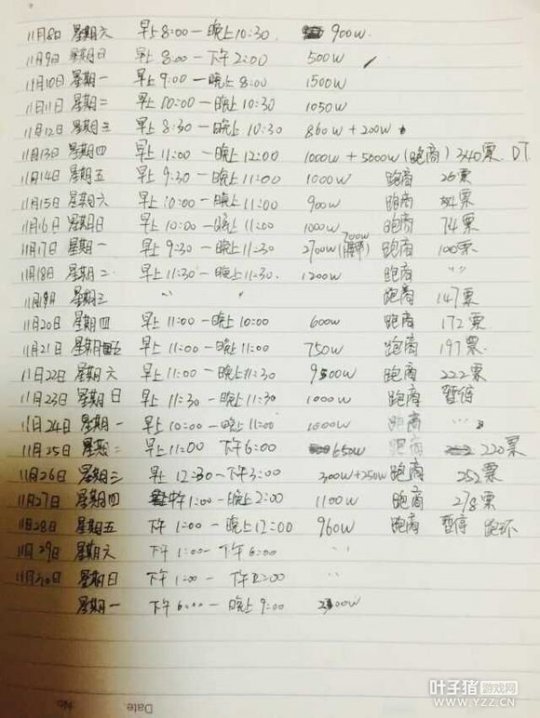 11月8日 星期六 早上8:00一晚上10:30 900W
11月9日 星期日 早上8:00一下午2:00 500W
11月10日 星期一 早上9:00一晚上8:00 1500W
11月11日 星期二 早上10:00一晚上10:30 1050W
11月12日 星期三 早上8:30一晚上10:30 860W+200W
11月13日 星期四 早上11:00一晚上12:00 1000W+5000W(跑商)340票 DT
11月14日 星期五 早上9:30一晚上11:00 1000W 跑商 26票
11月15日 星期六 早上10:00一晚上11:00 900W 跑商 票
11月16日 星期日 早上10:00一晚上11:00 1000W 跑商 74票
11月17日 星期一 早上9:30一晚上11:30 2700W 跑商 100票
11月18日 星期二 早上11:30一晚上11:30 1200W 跑商 〃
星期三 〃 〃 跑商 147票
11月20日 星期四 早上11:00一晚上10:00 600W 跑商 172票
11月21日 星期五 早上11:00一晚上11:00 750W 跑商 197票
11月22日 星期六 早上11:00一晚上11:30 跑商 222票
11月23日 星期日 早上11:30一晚上11:30 1000W 跑商 暂停
11月24日 星期一 早上10:00一晚上11:00 1000W 跑商
11月25日 星期二 早上11:00 下午6:00 650W 跑商 220票
11月26日 星期三 早上12:30一下午3:00 300W+250W 跑商 252票
11月27日 星期四 1:00一晚上2:00 1100W 跑商 278票
11月28日 星期五 下午1:00一晚上12:00 960W 跑商 暂停 跑环
11月29日 星期六 下午1:00一下午6:00 〃
11月30日 星期日 下午1:00一下午 :00 〃
星期一 下午6:00一晚上9:00
Date No
叶子猪游戏网
WWW.YZZ.CN